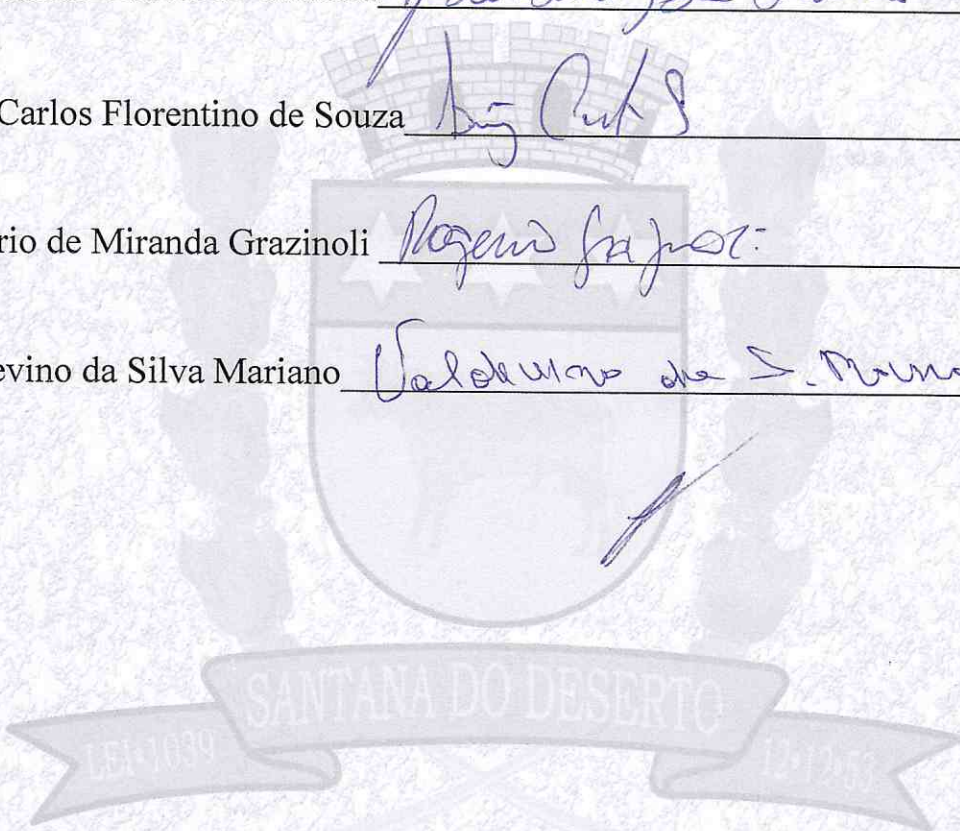 Carlos Florentino de Souza
rio de Miranda Grazinoli Rogerio
evino da Silva Mariano Valdevino da S.
SANTANA DO DESERTO
LEI•1039 12•12•53